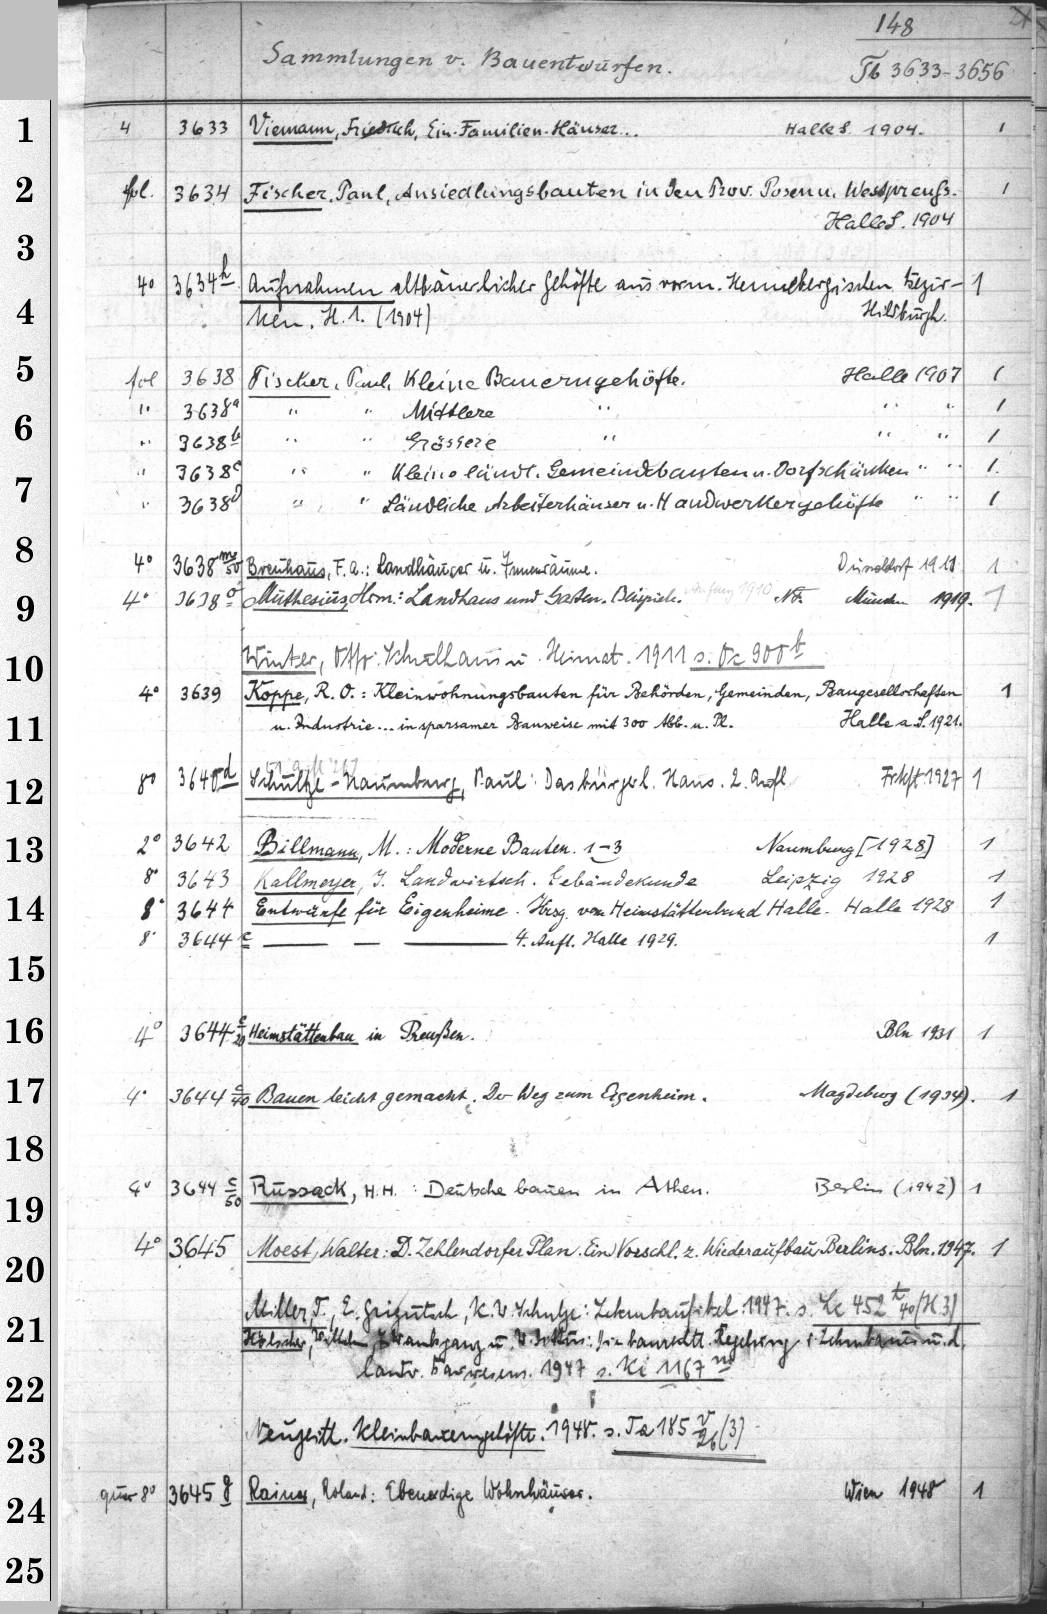 148
Sammlungen v. Bauentwürfen. Tb 3633-3656
1 4 3633 Viemann, Friedrich, Ein-Familien-Häuser... Halle S. 1904. 1
2 fol. 3634 Fischer, Paul, Ansiedlungsbauten in den Prov. Posen u. Westpreuß. 1
Halle S. 1904
3
4° 3634 h Aufnahmen altbäuerlicher Gehöfte aus vorm. Hennebergischen Bezir- 1
4 ken. H. 1. (1904) Hildburgh.
5 fol 3638 Fischer, Paul, Kleine Bauerngehöfte. Halle 1907 1
" 3638a " " Mittlere " " " 1
6 " 3638b " " Grössere " " " 1
" 3638c " " Kleine ländl. Gemeindebauten u. Dorfschänken " " 1.
7 " 3638d " " Ländliche Arbeiterhäuser u. Handwerkergehöfte " " 1
8 4° 3638 m/50 Breuhaus, F. A.: Landhäuser u. Innenräume. Düsseldorf 1911 1
9 4° 3638 o Muthesius, Hrm.: Landhaus und Garten. Beispiele. 1910 NF. München 1919. 1
10 Winter, Schulhaus u. Heimat. 1911 s. 900 t
4° 3639 Koppe, R. O.: Kleinwohnungsbauten für Behörden, Gemeinden, Baugesellschaften 1
11 u. Industrie... in sparsamer Bauweise mit 300 Abb. u. Pl. Halle a. S. 1921.
12 8° 3640 d Schultze-Naumburg, Paul: Das bürgerl. Haus. 2. Aufl Frkft 1927 1
13 2° 3642 Billmann, M.: Moderne Bauten. 1-3 Naumburg [1928] 1
8° 3643 Kallmeyer, J. Landwirtsch. Gebäudekunde Leipzig 1928 1
14 8° 3644 Entwürfe für Eigenheime. Hrsg. vom Heimstättenbund Halle. Halle 1928 1
8° 3644 c — — — 4. Aufl. Halle 1929. 1
15
16 4° 3644 c/20 Heimstättenbau in Preußen. Bln 1931 1
17 4° 3644 c/40 Bauen leicht gemacht. Der Weg zum Eigenheim. Magdeburg (1934). 1
18
19 4° 3644 c/50 Russack, H. H.: Deutsche bauen in Athen. Berlin (1942) 1
20 4° 3645 Moest, Walter: D. Zehlendorfer Plan. Ein Vorschl. z. Wiederaufbau Berlins. Bln. 1947. 1
Miller, T., E. Grigutsch, K. W. Schulze: Lehmbaufibel. 1947. s. Lc 452 t/40 (H 3)
21 Hölscher, u. baurechtl. Regelung i. Lehmbauw. u. d.
landw. Bauwesens. 1947 s. Ki 1167 m
22
23 Neuzeitl. Kleinbauerngehöfte. 1948. s. Ta 185 v/26 (3)
24 quer 8° 3645 g Rainer, Roland: Ebenerdige Wohnhäuser. Wien 1948 1
25